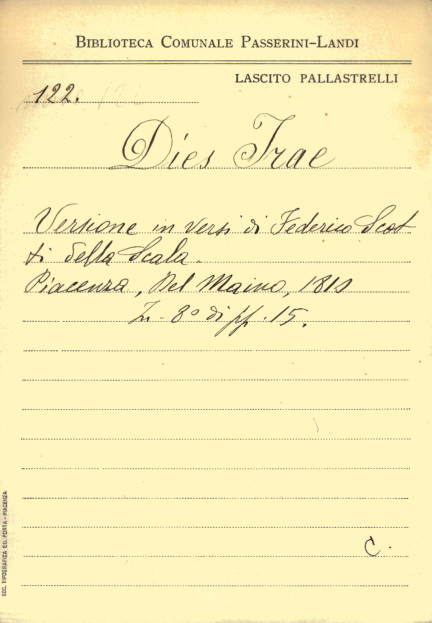 BIBLIOTECA COMUNALE PASSERINI-LANDI
LASCITO PALLASTRELLI
122.
Dies Irae
Versione in versi di Federico Scot
ti della Scala.
Piacenza, Del Maino, 1810
In-8º di pp. 15.
C.
SOC. TIPOGRAFICA ED. PORTA - PIACENZA